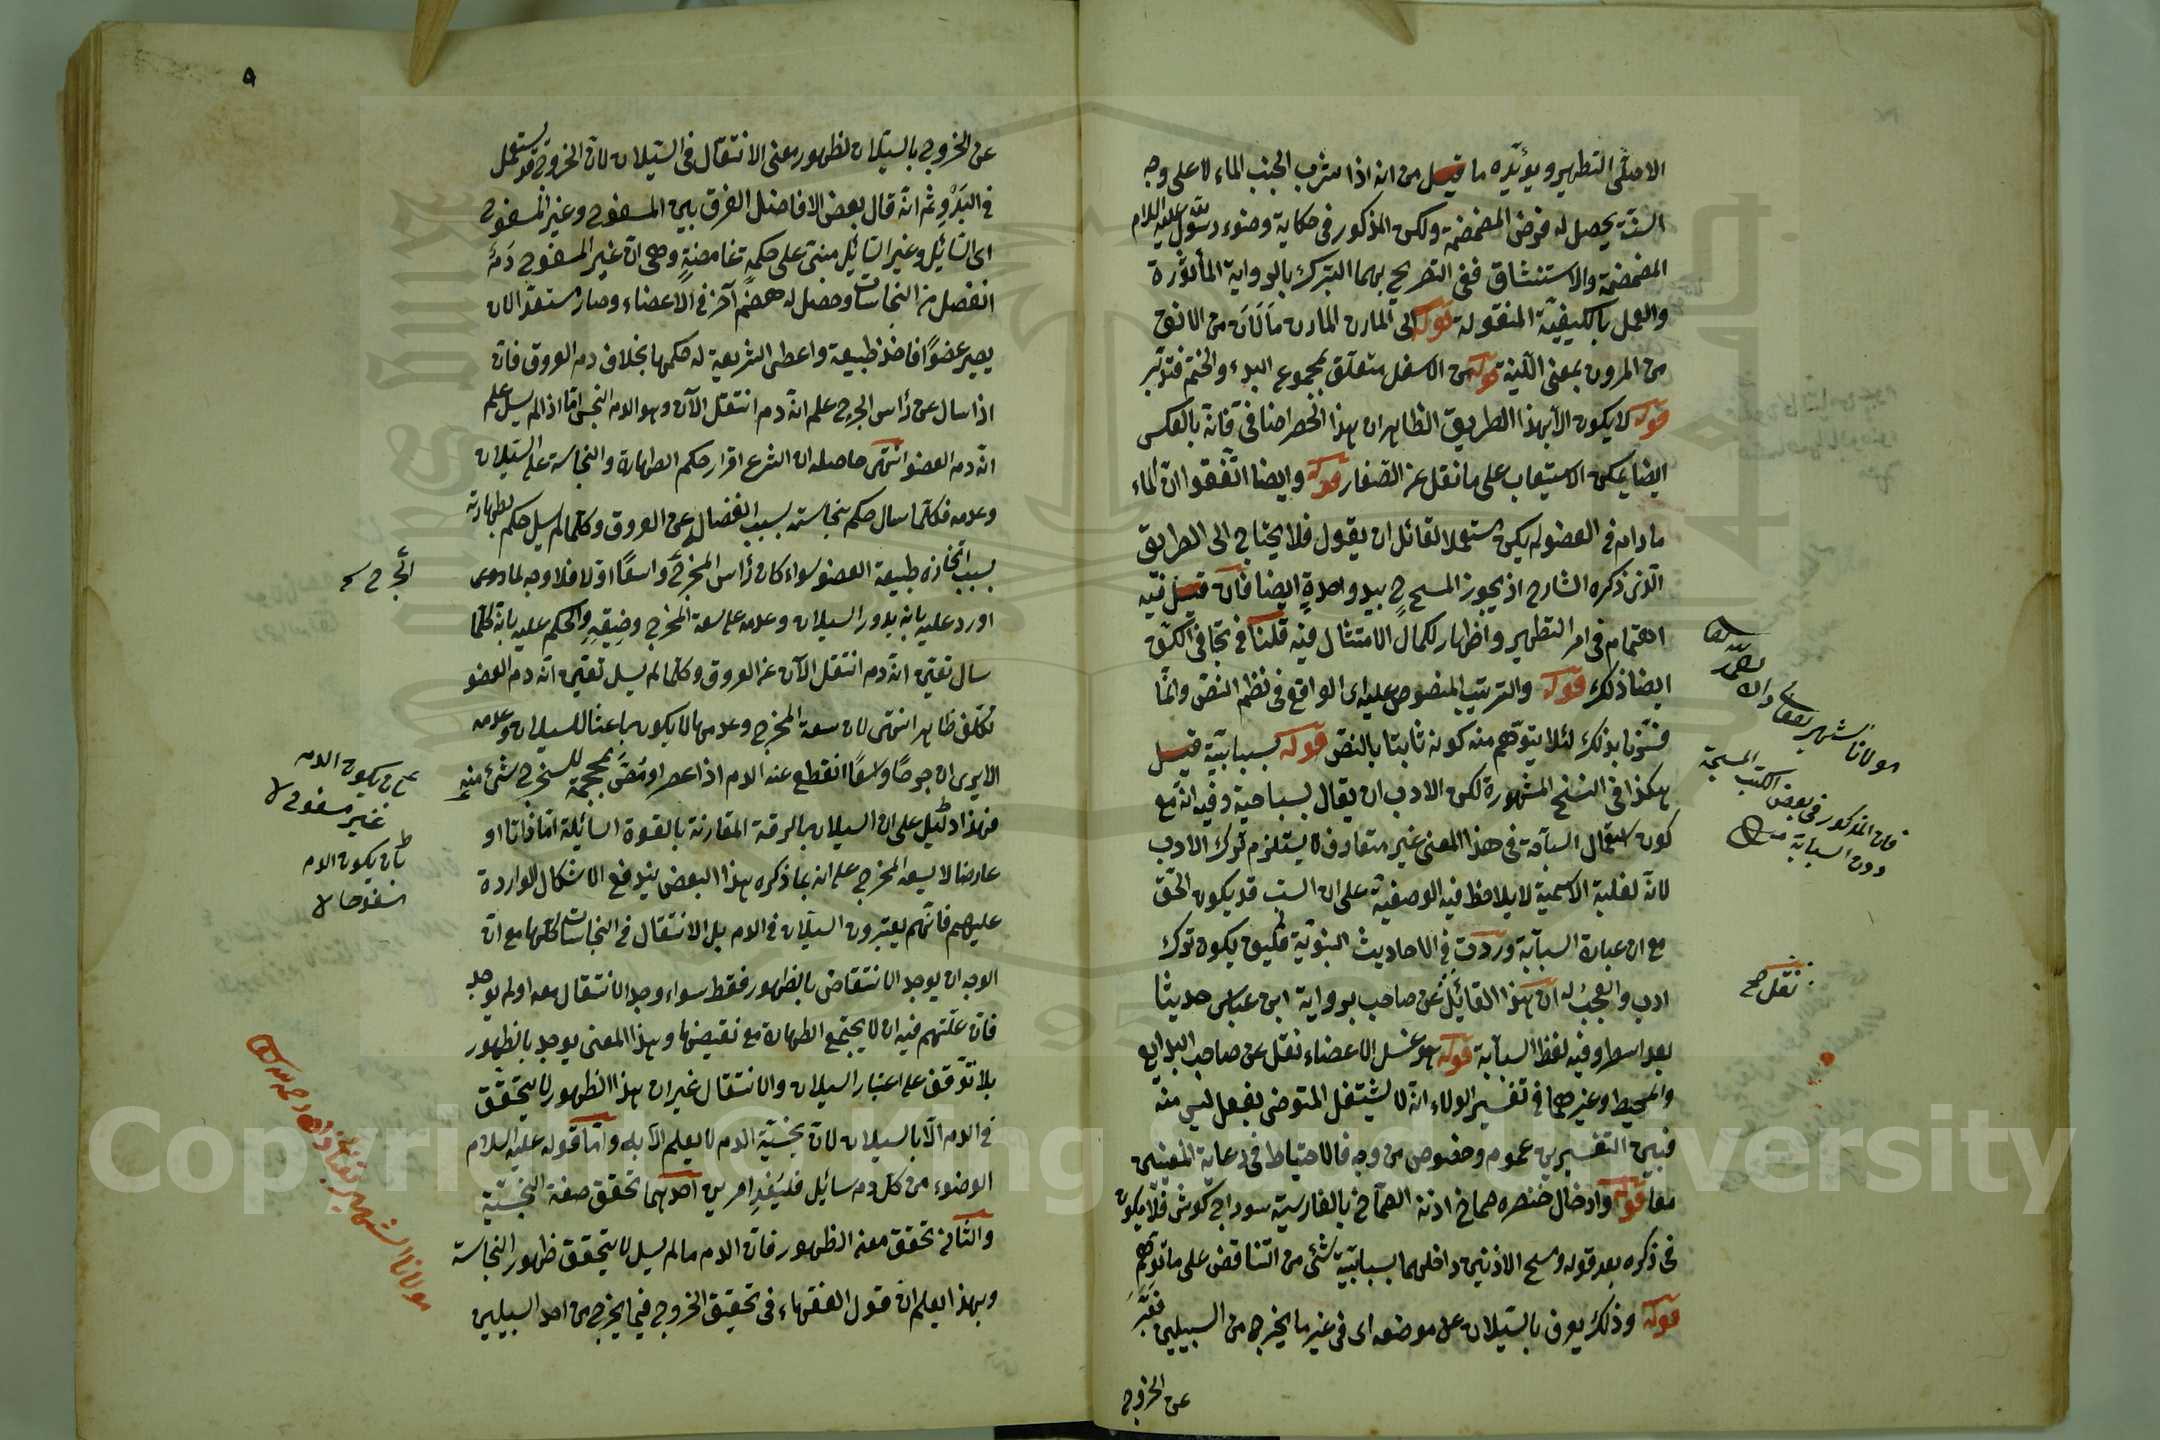 الاصلي التطهير ويؤيده ما قيل من انه اذا شرب الجنب الماء لا على وجه
السنة يحصل له فرض المضمضة ولكن المذكور في حكاية وضوء رسول الله عليه السلام
المضمضة والاستنشاق ففي التصريح بهما التبرك بالرواية المأثورة
والعمل بالكيفية المنقولة قوله الى المارن المارن ما لان من الانف
من المرون بمعنى اللينة قوله من الاسفل متعلق بمجموع البدء والختم فتدبر
قوله لا يكون الا بهذا الطريق الظاهر ان هذا الحصر اضافي فانه بالعكس
ايضا يمكن الاستيعاب على ما نقل عن الصفار قوله وايضا اتفقوا ان الماء
ما دام في العضو لم يكن مستعملا لقائل ان يقول فلا يحتاج الى الطريق
الذي ذكره الشارح اذ يجوز المسح ح بيد واحدة ايضا فان قيل فيه
اهتمام في امر التطهير واظهار لكمال الامتثال فيه قلنا في تجافي الكف
ايضا ذلك قوله والترتيب المنصوص عليه اى الواقع في نظم النص وانما
فسرنا بذلك لئلا يتوهم منه كونه ثابتا بالنص قوله بسبابتيه قيل
هكذا في النسخ المشهورة لكن الادب ان يقال بسباحتيه وفيه انه مع
كون استعمال السباحة في هذا المعنى غير متعارف لا يستلزم ترك الادب
لانه لغلبة الاسمية لا يلاحظ فيه الوصفية على ان السب قد يكون لحق
مع ان عبارة السبابة وردت في الاحاديث النبوية فكيف يكون ترك
ادب والعجب له ان هذا القائل عن صاحب برواية ابن عباس حديثا
بعد اسطر وفيه لفظ السبابة قوله هو غسل الاعضاء نقل عن صاحب البدايع
والمحيط وغيرهما في تفسير الولاء انه لا يشتغل المتوضى بفعل ليس منه
فبين التفسيرين عموم وخصوص من وجه فالاحتياط في رعاية المعنيين
معا قوله وادخال خنصره صماخ اذنه الصماخ بالفارسية سوراخ كوش فلا يكون
في ذكره بعد قوله ومسح الاذنين داخلهما بسبابتيه شئ من التناقض على ما توهم
قوله وذلك يعرف بالسيلان عن موضعه اى في غير ما يخرج من السبيلين فعبر
عن الخروج
مولانا الشهير بقاضى زاده
رحمه الله
فان المذكور في بعض الكتب المسبحة
دون السبابة منه
نقل صح
٥
عن الخروج بالسيلان لظهور معنى الانتقال في السيلان لان الخروج قد يستعمل
في البدو ثم انه قال بعض الافاضل الفرق بين المسفوح وغير المسفوح
اى السائل وغير السائل مبني على حكمة غامضة وهى ان غير المسفوح دم
انفصل من النجاسات وحصل له هضم آخر في الاعضاء وصار مستعدا لان
يصير عضوا فاخذ طبيعة واعطى الشريعة له حكمها بخلاف دم العروق فان
اذا سال عن رأس الجرح علم انه دم انتقل الآن وهو الدم النجس اما اذا لم يسل علم
انه دم العضو انتهى حاصله ان الشرع اقرار حكم الطهارة والنجاسة على السيلان
وعدمه فكلما سال حكم بنجاسته بسبب انفصاله عن العروق وكلما لم يسل حكم بطهارته
بسبب اتخاذه طبيعة العضو سواء كان رأس المخرج واسعا او لا فلا وجه لما
اورد عليه بانه يدور السيلان وعدمه على سعة المخرج وضيقه والحكم عليه بانه كلما
سال تعين انه دم انتقل الآن عن العروق وكلما لم يسل تعين انه دم العضو
تكلف ظاهر انتهى لان سعة المخرج وعدمها لا يكون باعثا للسيلان وعدمه
الا يرى ان جرحا واسعا انقطع عنه الدم اذا عصر او مص بمحجمة لا يخرج شئ منه
فهذا دليل على ان السيلان بالرقة المقارنة بالقوة السائلة اما ذاتا او
عارضا لا بسعة المخرج على انه بما ذكره هذا البعض يندفع الاشكال الواردة
عليهم فانهم يعتبرون السيلان في الدم بل الانتقال في النجاسات كلها مع ان
الوجه ان يوجد الانتقاض بالظهور فقط سواء وجد الانتقال معه او لم يوجد
فان علتهم فيه ان لا يجتمع الطهارة مع نقيضها وهذا المعنى يوجد بالظهور
بلا توقف على اعتبار السيلان والانتقال غير ان هذا الظهور لا يتحقق
في الدم الا بالسيلان لان نجسية الدم لا يعلم الا به واما قوله عليه السلام
الوضوء من كل دم سائل فليفد امرين احدهما تحقق صفة النجسية
والثاني تحقق معنى الظهور فان الدم ما لم يسل لا يتحقق ظهور النجاسة
وبهذا يعلم ان قول الفقهاء في تحقيق الخروج فيما يخرج من احد السبيلين
الجرح
بان يكون الدم
غير مسفوح
بان يكون الدم
مسفوحا
مولانا الشهير بقاضى زاده رحمه الله